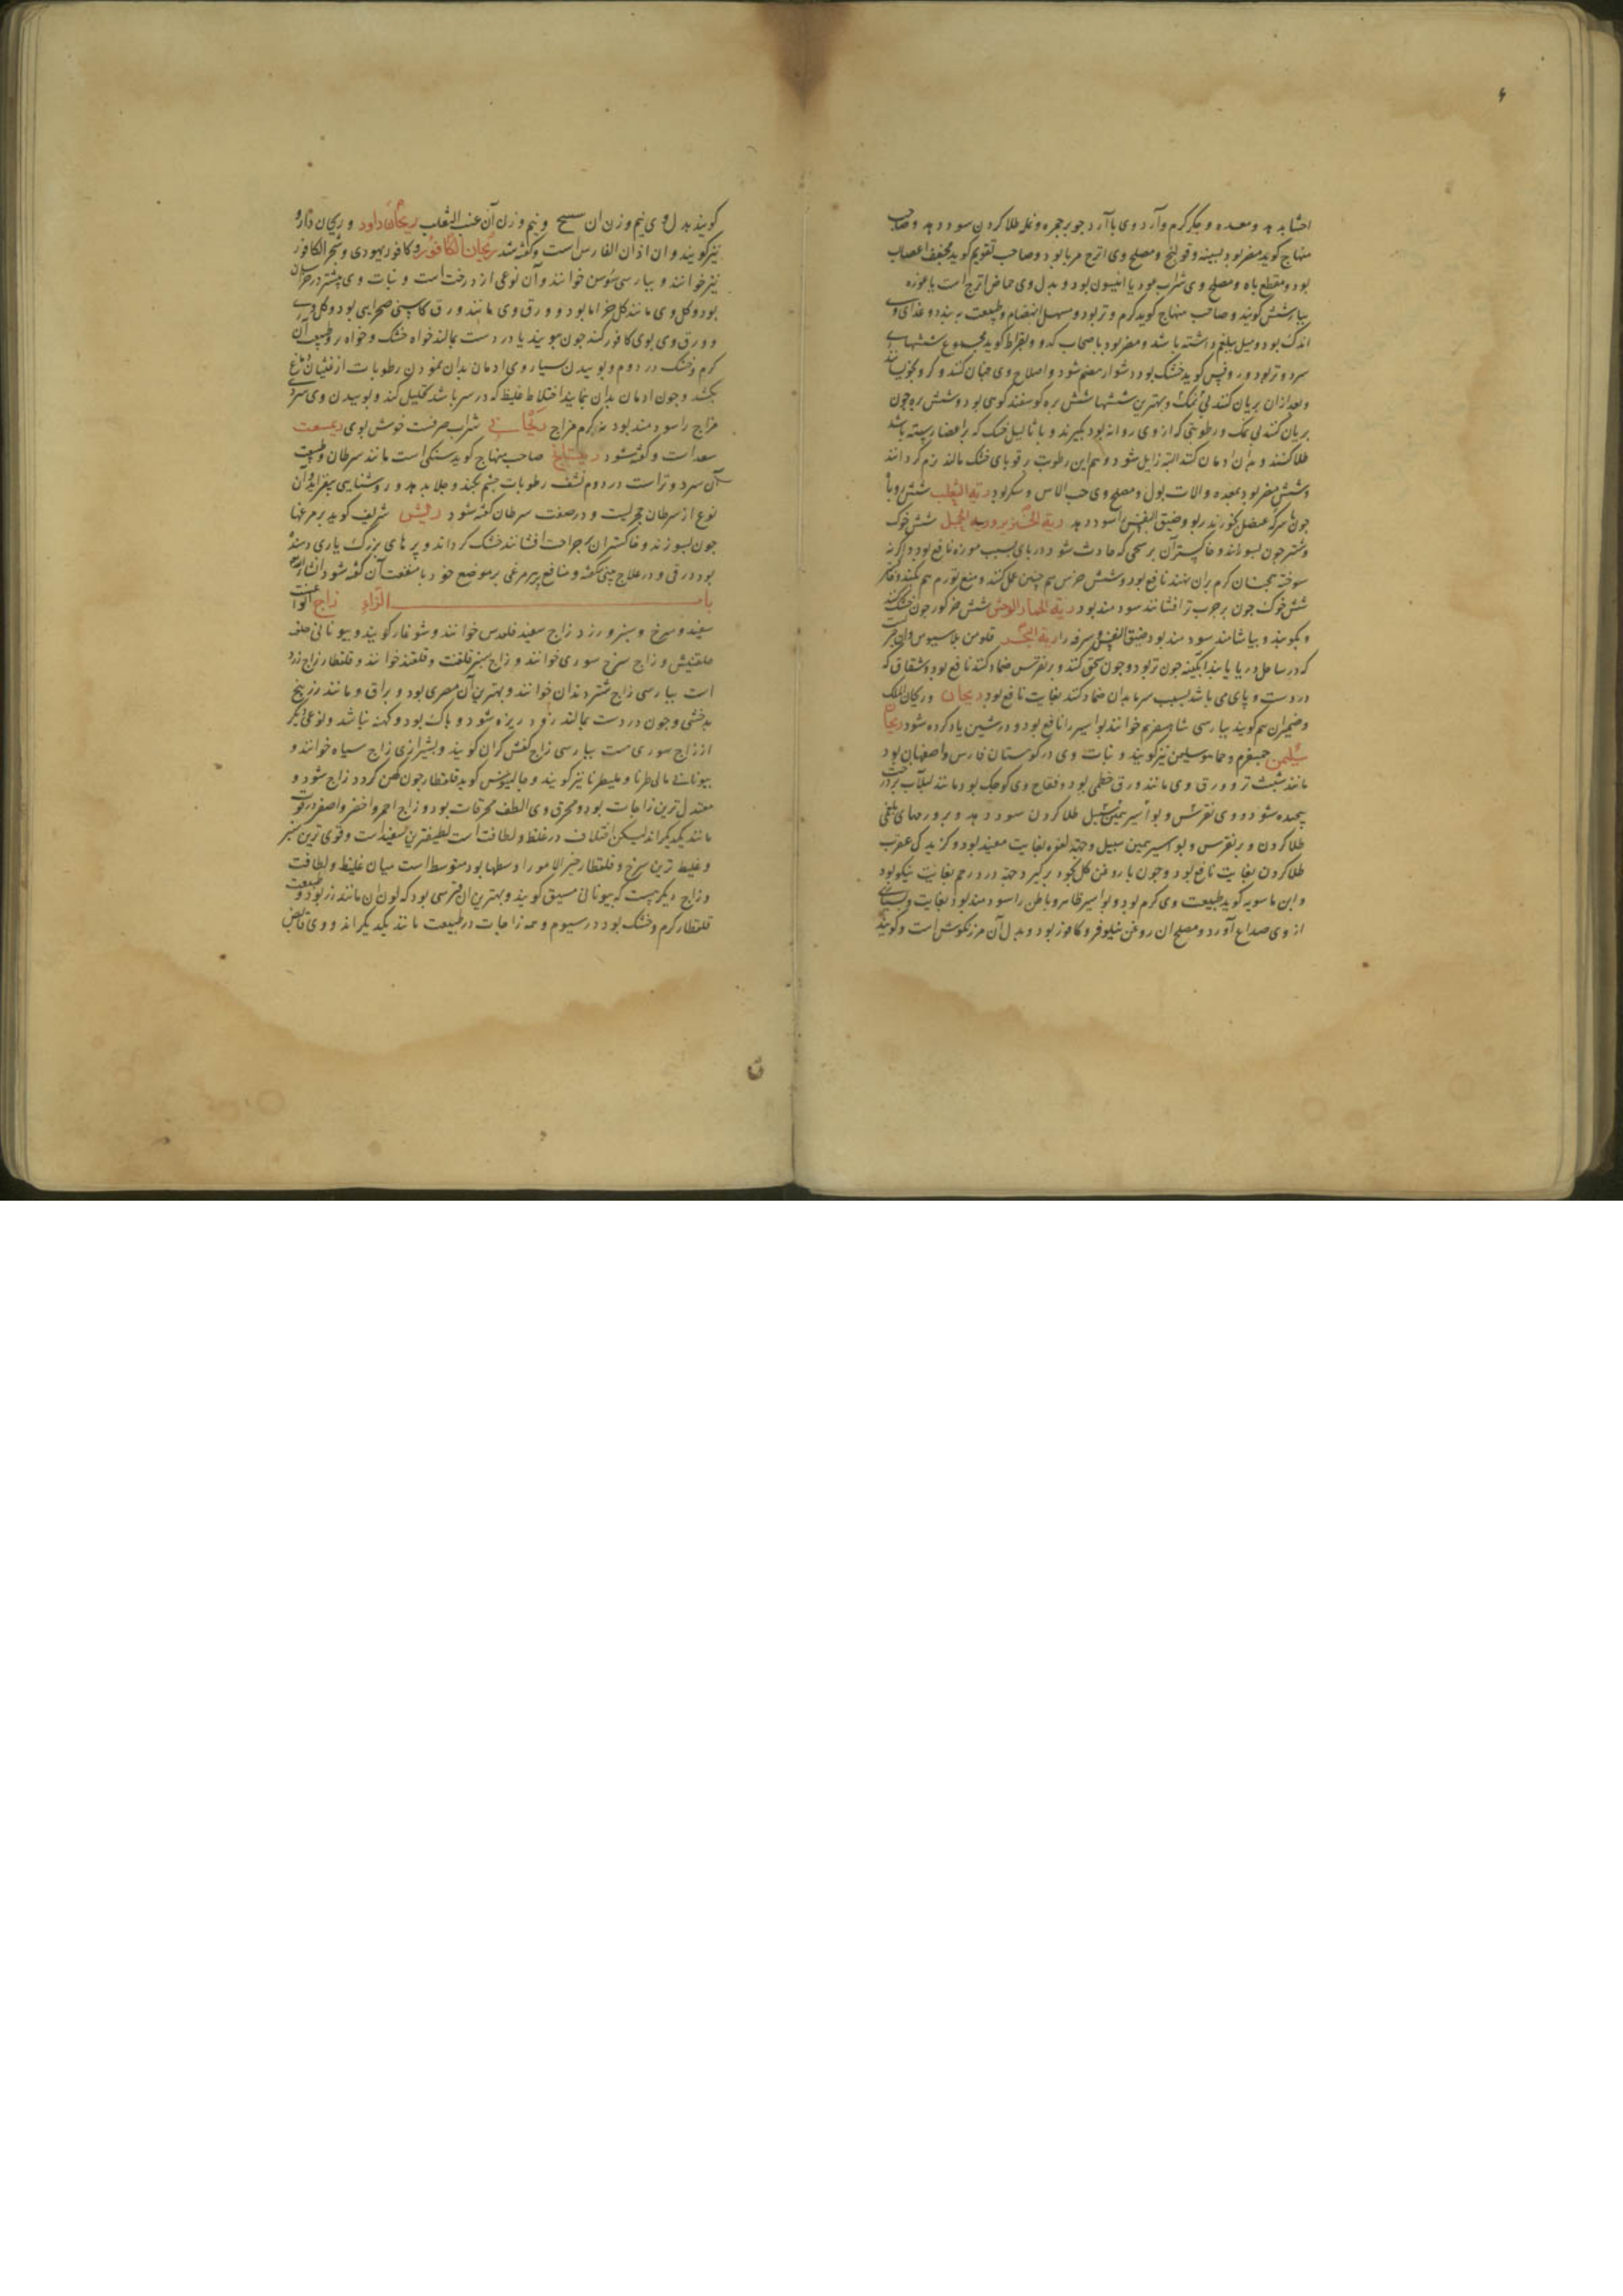 احشا بدهد و معده و جگر گرم و آرد وی با آرد جو بر جمره و نمله طلا کردن سود دهد و صاحب
منهاج گوید مضر بود بسینه و قولنج و مصلح وی اترج مربا بود و صاحب تقویم گوید مجفف اعصاب
بود و مقطع باه و مصلح وی شراب عود یا انیسون بود و بدل وی حماض اترج است یا غوره
بپارسی شش گویند و صاحب منهاج گوید گرم و تر بود و سهل انهضام و طبیعت ببندد و غذای وی
اندک بود و میل ببلغم داشته باشد و مضر بود باصحاب کدو و بقراط گوید مجموع ششها
سرد و تر بود و روفس گوید خشک بود و دشوار هضم شود و اصلاح وی چنان کنند
و بعد ازان بریان کنند بی نمک و بهترین ششها شش بره گوسفند کوهی بود و شش بره چون
بریان کنند بی نمک و رطوبتی که از وی روانه بود بگیرند و با ثالیل خشک که بر اعضا رسته باشد
طلا کنند و بدان ادمان کنند البته زایل شود و هم این رطوبت بر قوبای خشک مالند نرم گرداند
و شش مضر بود بمعده و الات بول و مصلح وی حب الاس و سکر بود ریة الثعلب شش روباه
چون با سرکه عنصل بخورند ربو و ضیق النفس را سود دهد ریة الخنزیر و ریة الجمل شش خوک
و شتر چون بسوزانند و خاکستر آن بر سحجی که حادث شود در پای بسبب موزه نافع بود و اگر نه
سوخته همچنان گرم بران نهند نافع بود و شش خرس هم چنین عمل کند و منع تورم هم بکند
شش خوک چون بر جرب تر افشانند سودمند بود ریة الحمار الوحش شش خر گور چون خشک کنند
و بکوبند و بیاشامند سودمند بود ضیق النفس و سرفه را ریة البحر قلومن بلاسیوس
که در ساحل دریا یابند آبگینه چون تر بود و چون سحق کنند و بر نقرس ضماد کنند نافع بود و شقاق که
در دست و پای می باشد بسبب سرما بدان ضماد کنند بغایت نافع بود ریحان و ریحان الملک
و ضیمران هم گویند بپارسی شاه اسفرم خوانند بواسیر را نافع بود و در شین یاد کرده شود ریحان
سلیمن جمسفرم و حماموسلیمن نیز گویند و نبات وی در کوهستان فارس و اصفهان بود
مانند شبت تر و ورق وی مانند ورق خطمی بود و فقاح وی کوچک بود مانند لبلاب بر درخت
پیچیده شود و وی نقرس و بواسیر طلا کردن سود دهد و بر ورمهای بلغمی
طلا کردن و بر نقرس و بواسیر همین سبیل و جهة لقوه بغایت مفید بود و گزیدگی عقرب
طلا کردن بغایت نافع بود و چون با روغن گل بخود برگیرد جهة درد رحم بغایت نیکو بود
و ابن ماسویه گوید طبیعت وی گرم بود و بواسیر ظاهر و باطن را سودمند بود بغایت
از وی صداع آورد و مصلح ان روغن نیلوفر و کافور بود و بدل آن مرزنگوش است و گویند
گویند بدل وی نیم وزن ان سیسنبر و نیم وزن آن عنب الثعلب ریحان داود و ریحان داود
نیز گویند و ان اذان الفار س است و گفته شد ریحان الکافور و کافور یهودی و شجر الکافور
نیز خوانند و بپارسی سوسن خوانند و آن نوعی از درخت است و نبات وی بیشتر در خراسان
بود و گل وی مانند گل خزاما بود و ورق وی مانند ورق کاسنی صحرایی بود و گل وی
و ورق وی بوی کافور کند چون ببویند یا در دست بمالند خواه خشک و خواه تر و طبیعت آن
گرم و خشک در دوم و بوییدن بسیار وی ادمان بدان نمودن رطوبات از دماغ
بکشد و چون ادمان بدان نمایند اختلاط غلیظ که در سر باشد تحلیل کند و بوییدن وی سرد
مزاج را سودمند بود نه گرم مزاج ریحانی شراب صرفست خوش بوی ریمسعت
سعد است و گفته شود صاحب منهاج گوید سنگی است مانند سرطان و طبیعت
آن سرد و تر است در دوم نشف رطوبات چشم بکند و جلا بدهد و روشنایی بیفزاید و آن
نوع از سرطان بحریست و در صفت سرطان گفته شود ریش شریف گوید پر مرغها
چون بسوزند و خاکستر ان بر جراحت افشانند خشک گرداند و پرهای بزرگ
بود در قی و در علاج منافع پر مرغی بر موضع خود با منفعت آن گفته شود انشاءالله
باب الزاء زاج انواعست
سفید و سرخ و سبز و زرد زاج سفید قلقدس خوانند و شوغار گویند و بیونانی
و زاج سرخ سوری خوانند و زاج سبز قلقنت و قلقند خوانند و قلقطار زاج زرد
است بپارسی زاج شتر دندان خوانند و بهترین آن مصری بود و براق و مانند زرنیخ
بدخشی و چون در دست بمالند زود ریزه شود و پاک بود و کهنه نباشد و نوعی دیگر
از زاج سوری هست بپارسی زاج کفش گران گویند و بشیرازی زاج سیاه خوانند و
بیونانی مالیطریا و ملیطرنا نیز گویند و جالینوس گوید قلقطار چون کهن گردد زاج شود و
معتدل ترین زاجات بود و محرق وی الطف محرقات بود و زاج احمر و اخضر و اصفر در قوت
مانند یکدیگراند لیکن اختلاف در غلظ و لطافت است لطیفترین سفید است و قوی ترین سبز
و غلیظ ترین سرخ و قلقطار خیر الامور اوسطها بود متوسط است میان غلیظ و لطافت
و زاج دیگر هست که بیونانی میسق گویند و بهترین ان قبرسی بود که لون ان مانند زر بود و طبیعت
قلقطار گرم و خشک بود در سیوم و همه زاجات در طبیعت مانند یکدیگراند و وی قابض